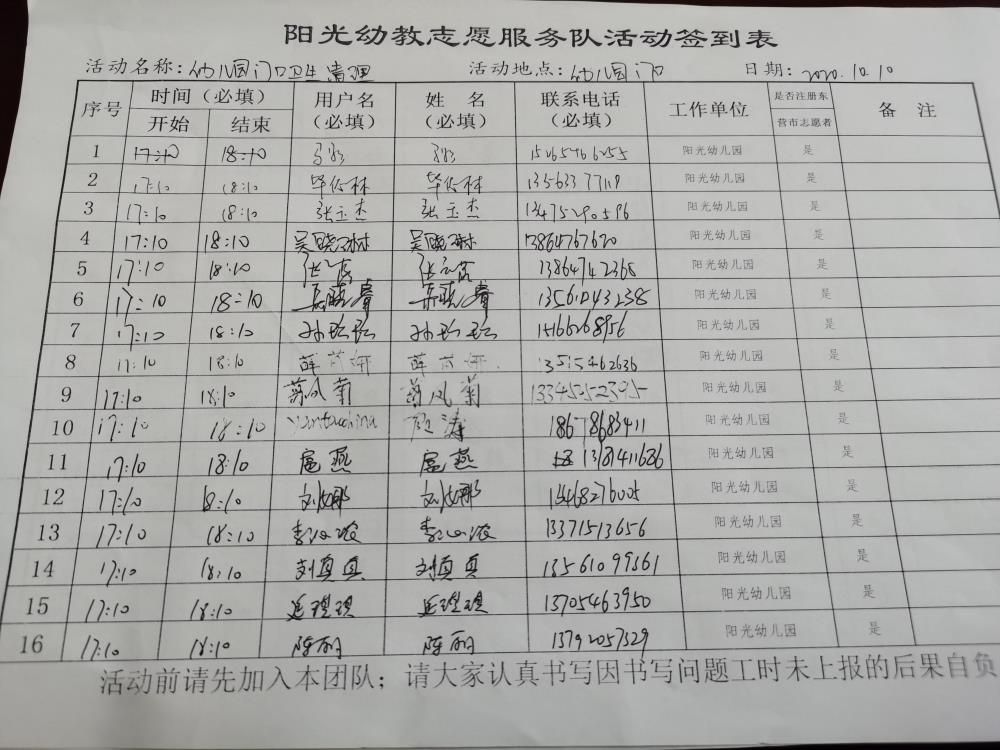 阳光幼教志愿服务队活动签到表
活动名称：幼儿园门口卫生清理 活动地点：幼儿园门口 日期：2020.10.10
序号 时间（必填） 用户名（必填） 姓 名（必填） 联系电话（必填） 工作单位 是否注册东营市志愿者 备 注
开始 结束
1 17:10 18:10 阳光幼儿园 是
2 17:10 18:10 毕传林 毕传林 阳光幼儿园 是
3 17:10 18:10 张玉杰 张玉杰 13475290596 阳光幼儿园 是
4 17:10 18:10 吴晓琳 吴晓琳 13864767620 阳光幼儿园 是
5 17:10 18:10 13864742368 阳光幼儿园 是
6 17:10 18:10 阳光幼儿园 是
7 17:10 18:10 孙珍珍 孙珍珍 阳光幼儿园 是
8 17:10 18:10 薛 薛 阳光幼儿园 是
9 17:10 18:10 凤菊 凤菊 阳光幼儿园 是
10 17:10 18:10 涛 18678683411 阳光幼儿园 是
11 17:10 18:10 扈燕 扈燕 阳光幼儿园 是
12 17:10 18:10 刘娜 刘娜 阳光幼儿园 是
13 17:10 18:10 李 李 13371513656 阳光幼儿园 是
14 17:10 18:10 刘真真 刘真真 13561099361 阳光幼儿园 是
15 17:10 18:10 13705463950 阳光幼儿园 是
16 17:10 18:10 陈丽 陈丽 13792057329 阳光幼儿园 是
活动前请先加入本团队；请大家认真书写因书写问题工时未上报的后果自负